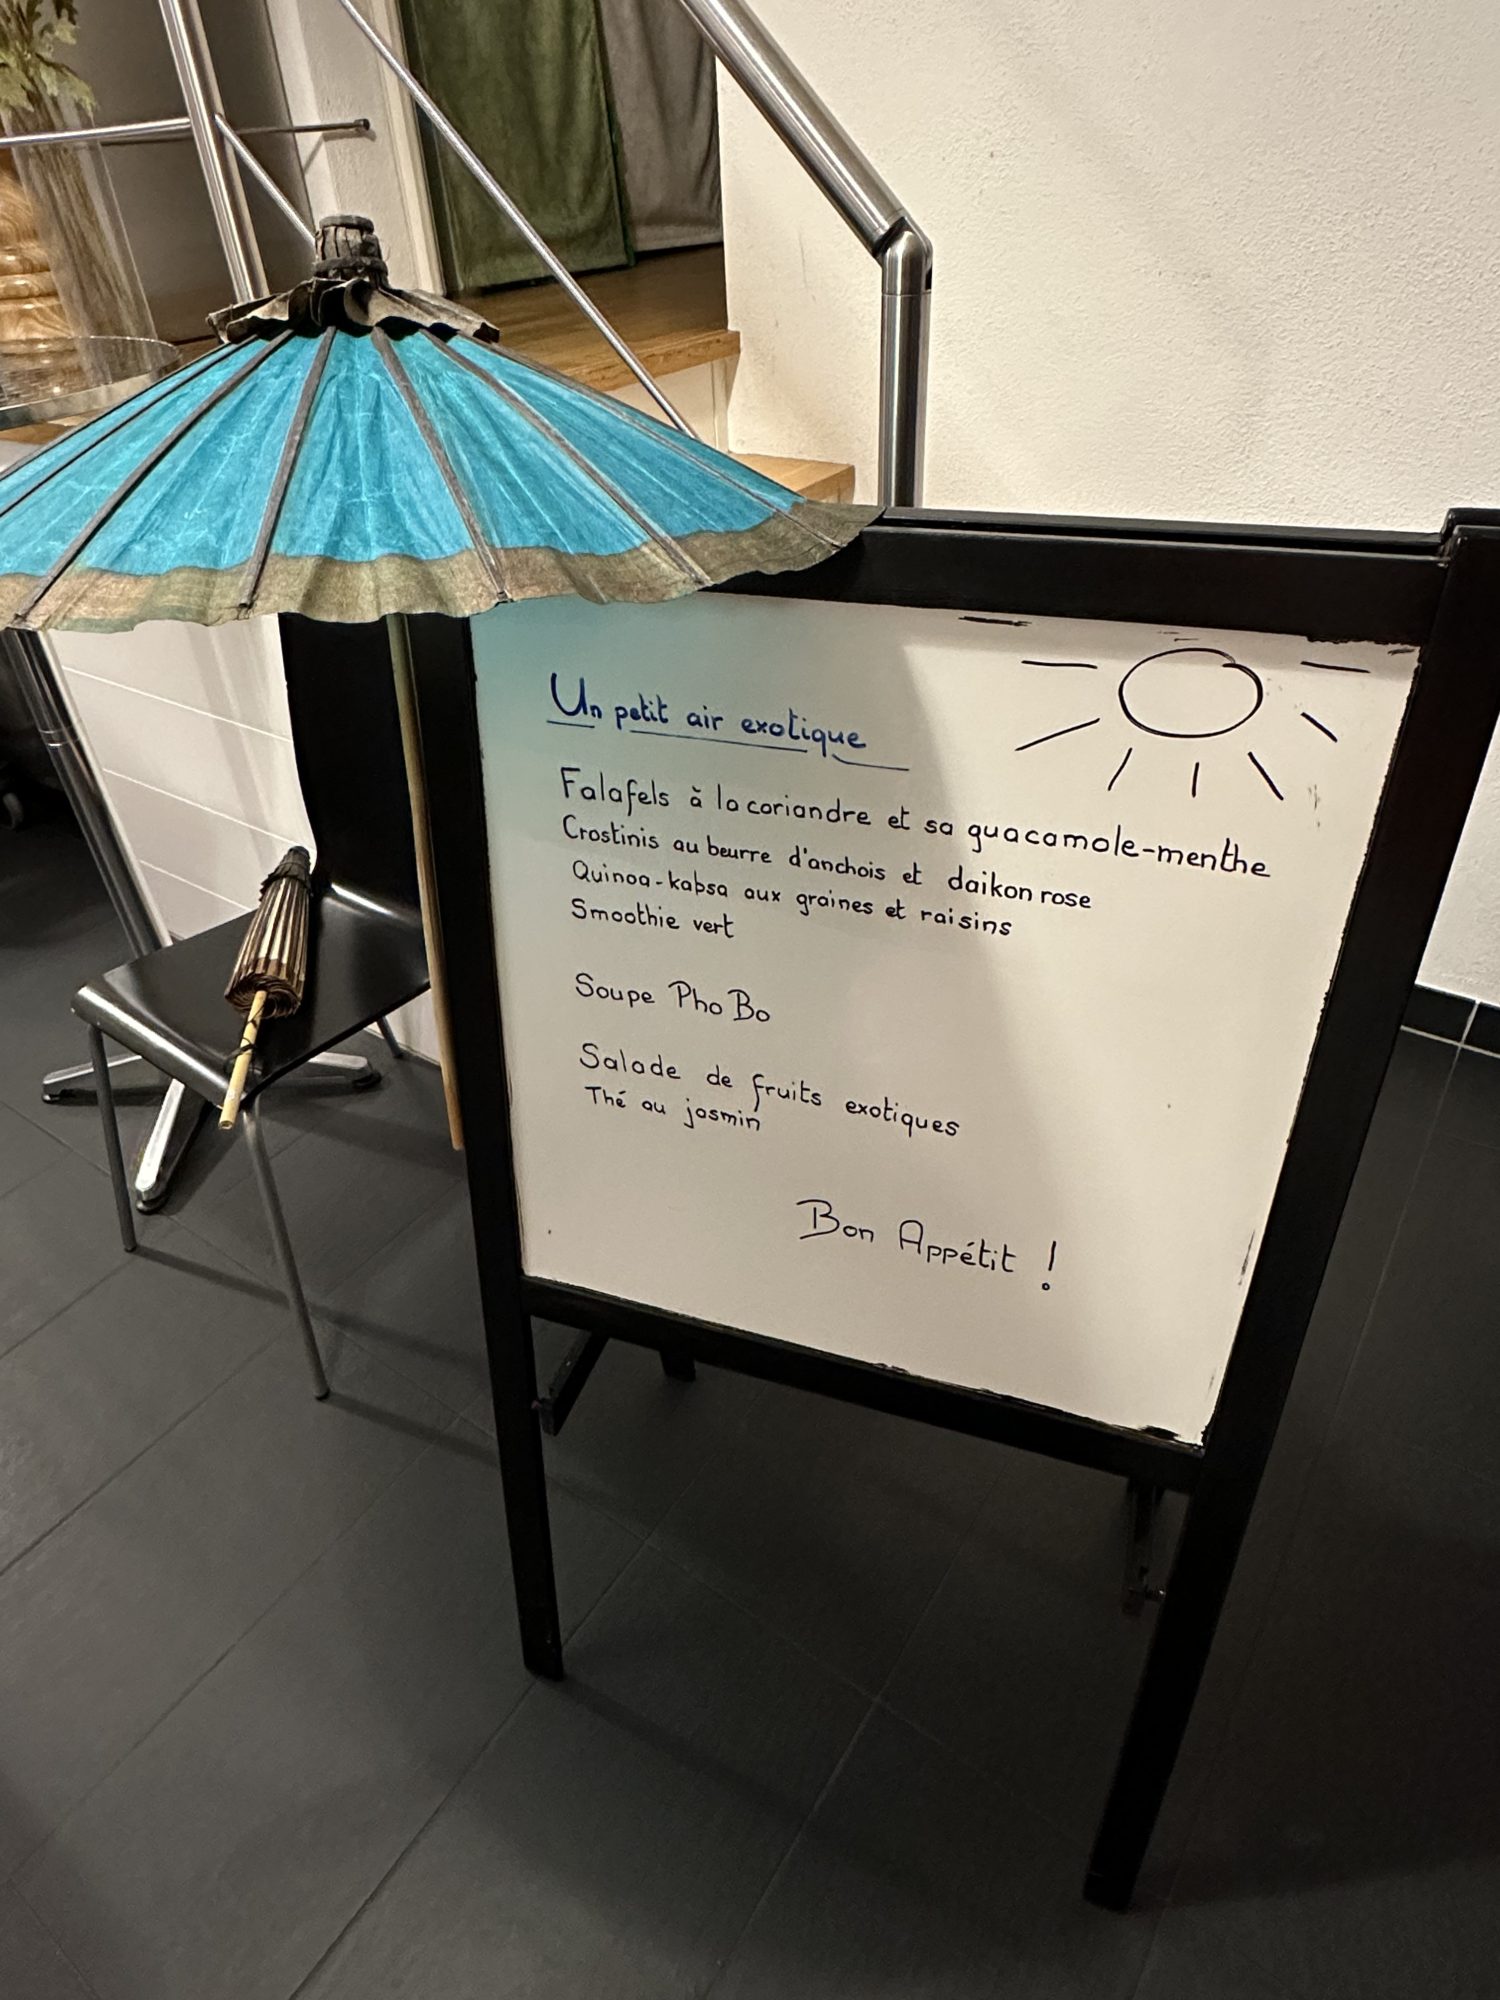 Un petit air exotique
Falafels à la coriandre et sa guacamole-menthe
Crostinis au beurre d'anchois et daikon rose
Quinoa-kabsa aux graines et raisins
Smoothie vert
Soupe Pho Bo
Salade de fruits exotiques
Thé au jasmin
Bon Appétit !